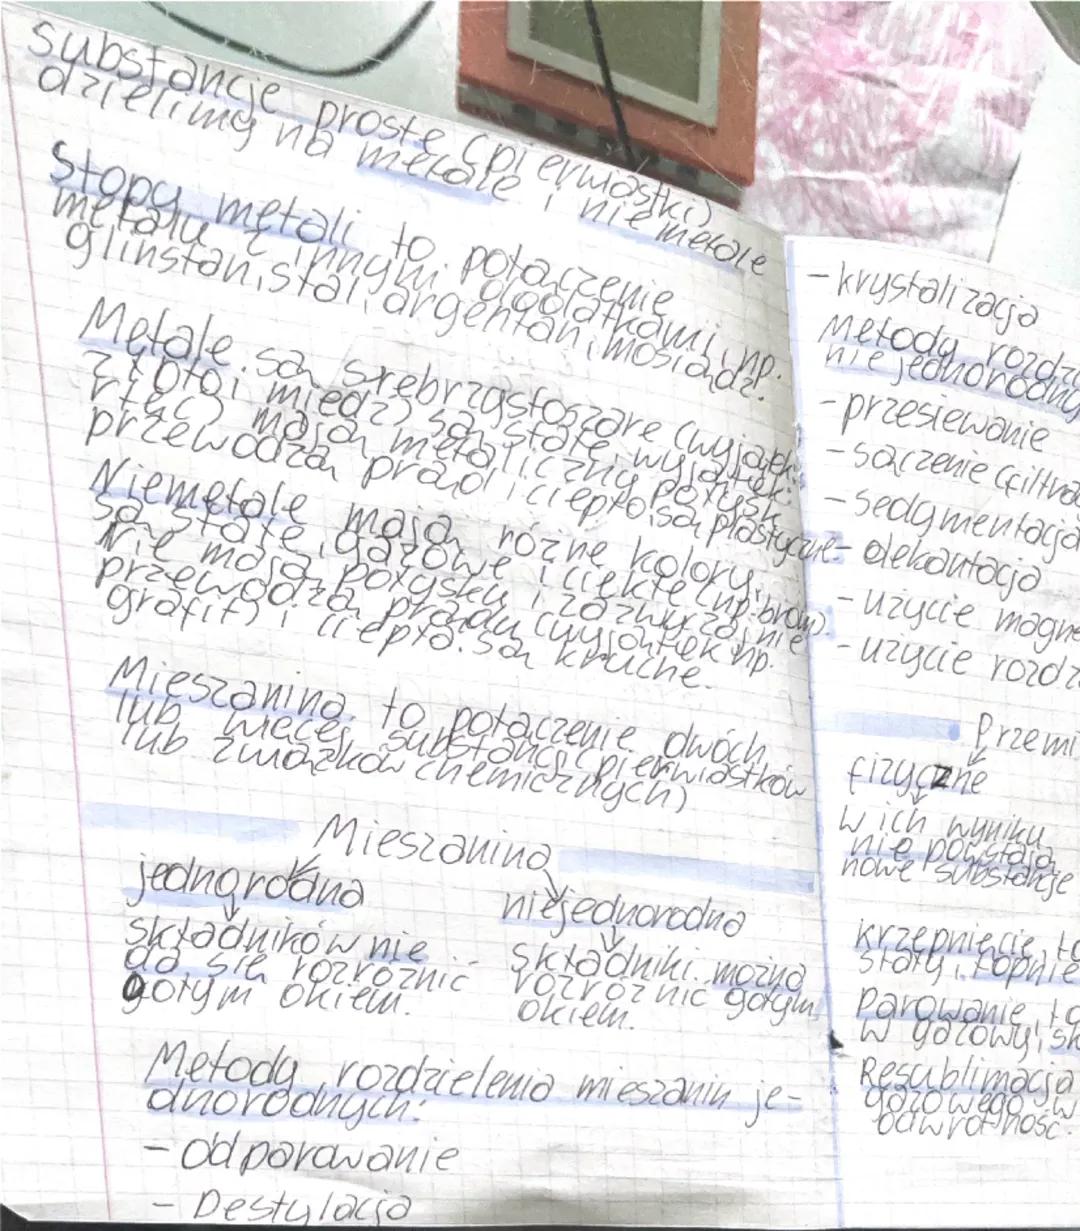 substancje proste (pierwiastki)
dzielimy na metale i niemetale
Stopy metali to połączenie
metalu z innymi dodatkami, np.
glinstan, stal, argentan, mosiądz.
Metale są srebrzystoszare (wyjątek:
złoto i miedź) są stałe wyjątek:
rtęć) mają metaliczny połysk
przewodzą prąd i ciepło, są plastyczne.
Niemetale mają różne kolory,
są stałe, gazowe i ciekłe (np. brom)
Nie mają połysku i zazwyczaj nie
przewodzą prądu (wyjątek np.
grafit) i ciepła. są kruche.
Mieszanina to połączenie dwóch
lub więcej substancji (pierwiastków
lub związków chemicznych)
Mieszanina
jednorodna
niejednorodna
składników nie
da się rozróżnić
gołym okiem.
składniki można
rozróżnić gołym
okiem.
Metody rozdzielenia mieszanin je-
dnorodnych:
- odparowanie
- Destylacja
- krystalizacja
Metody rozdz
niejednorodny
- przesiewanie
- sączenie (filtra
- sedymentacja
- dekantacja
- użycie magne
- użycie rozdz
Przemi
fizyczne
w ich wyniku
nie powstają
nowe substancje
krzepnięcie to
stały, topnie
Parowanie to
w gazowy, sk
Resublimacja
gazowego w
odwrotność.